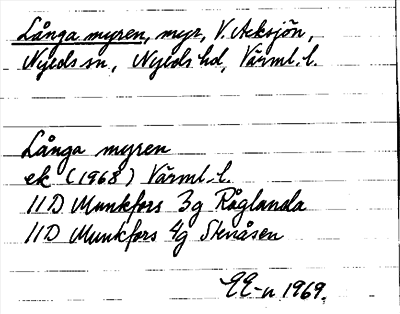 Långa myren, myr, V. Acksjön,
Nyeds sn, Nyeds hd, Värml. l.
Långa myren
ek (1968) Värml. l.
11D Munkfors 3g Råglanda
11D Munkfors 4g Stenåsen
1969.